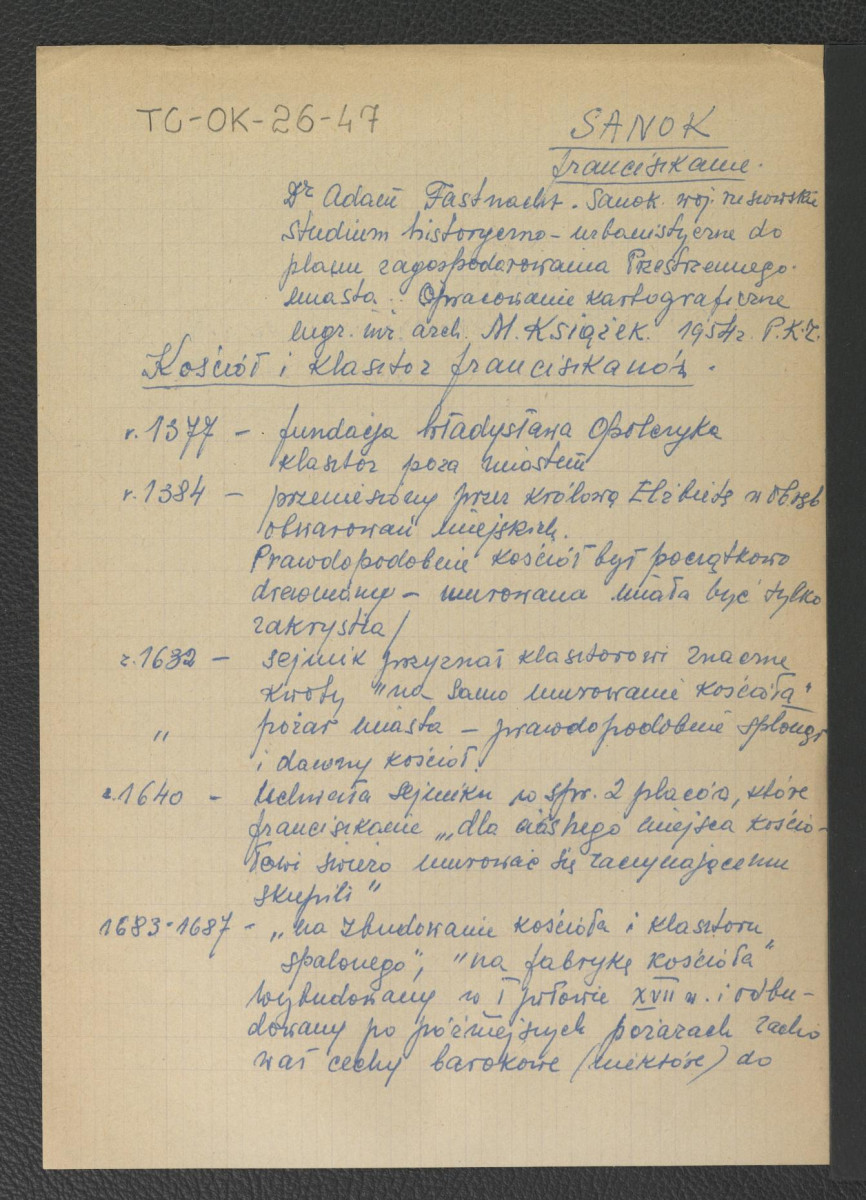 TC-OK-26-47
SANOK
franciszkanie.
Dr Adam Fastnacht. Sanok. woj. rzeszowskie
Studium historyczno-urbanistyczne do
planu zagospodarowania Przestrzennego
miasta. Opracowanie kartograficzne
mgr. inż. arch. M. Książek. 1954r. P.K.Z.
Kościół i klasztor franciszkanów.
r. 1377 - fundacja Władysława Opolczyka
klasztor poza miastem
r. 1384 - przeniesiony przez królową Elżbietę w obręb
obwarowań miejskich.
Prawdopodobnie kościół był początkowo
drewniany - murowana miała być tylko
zakrystia /
r. 1632 - sejmik przyznał klasztorowi znaczne
kwoty "na samo murowanie kościoła"
" pożar miasta - prawdopodobnie spłonął
i dawny kościół.
r. 1640 - Uchwała sejmiku w spr. 2 placów, które
franciszkanie „dla ciasnego miejsca kościo-
łowi świeżo murować się zaczynającemu
skupili"
1683-1687 - „na zbudowanie kościoła i klasztoru
spalonego", "na fabrykę kościoła"
Wybudowany w I połowie XVII w. i odbu-
dowany po późniejszych pożarach zacho
wał cechy barokowe (niektóre) do